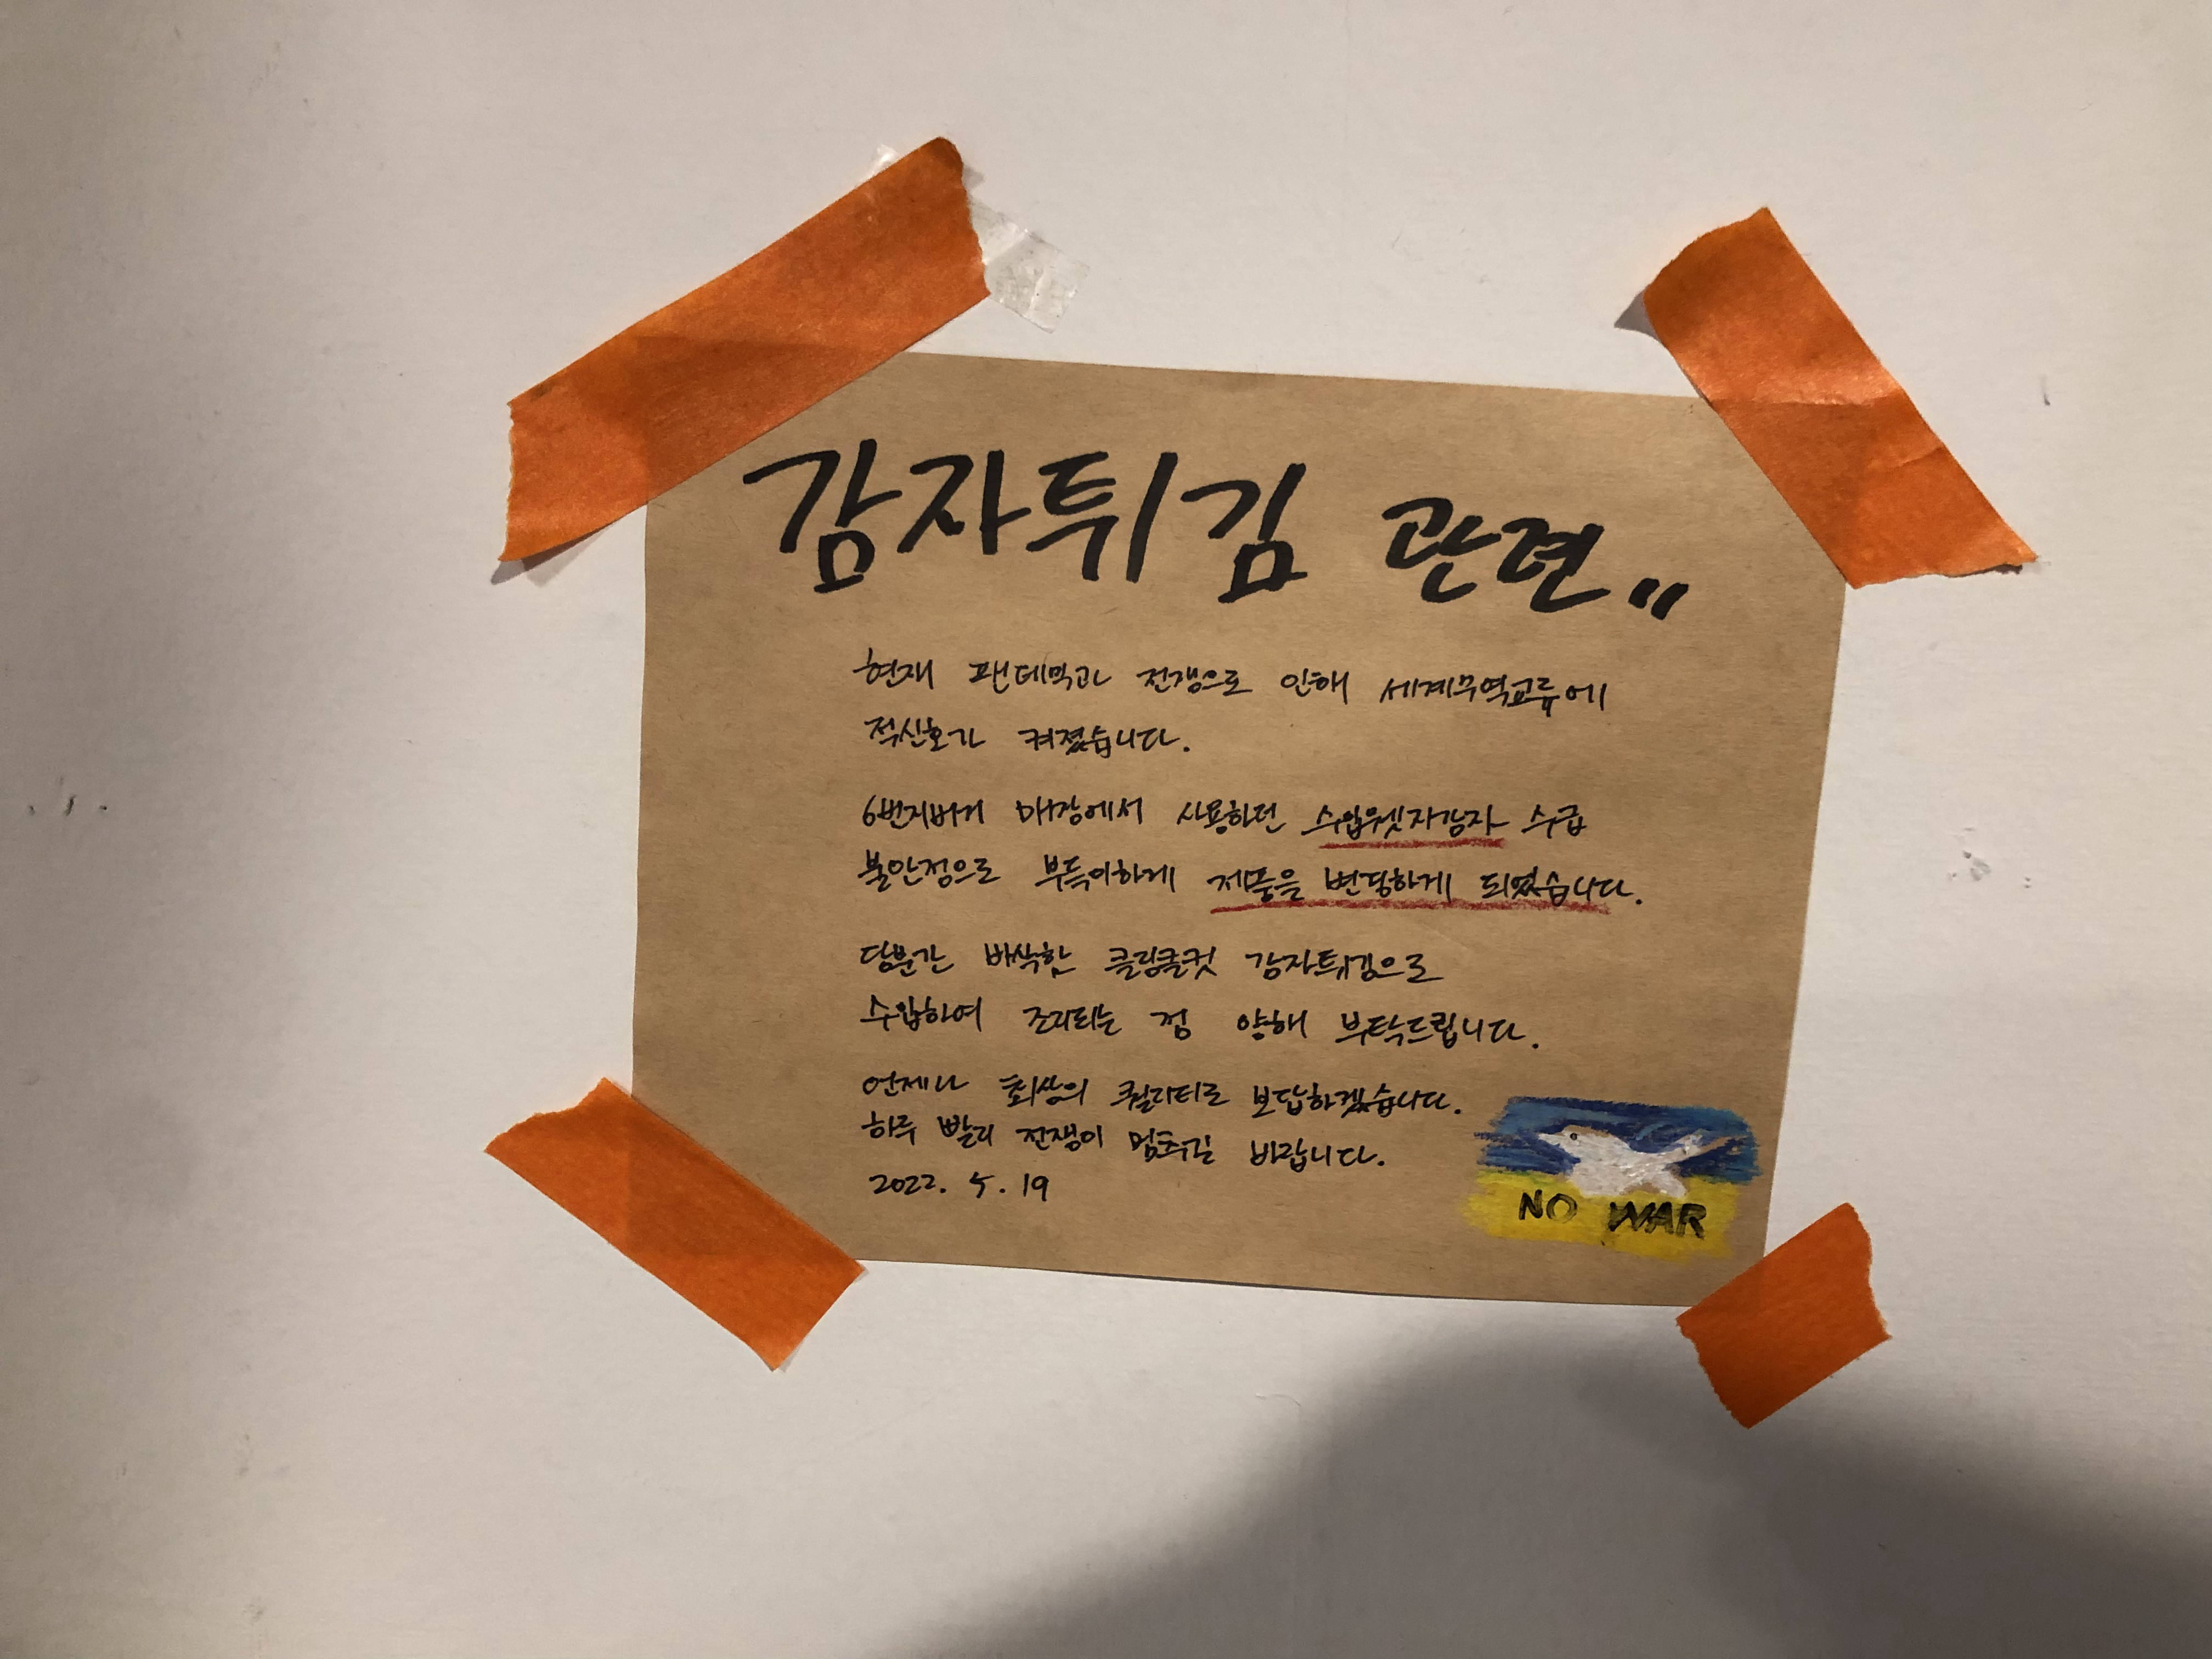 감자튀김 관련..
현재 팬데믹과 전쟁으로 인해 세계무역교류에
적신호가 켜졌습니다.
6번지버거 매장에서 사용하던 수입웻지감자 수급
불안정으로 부득이하게 제품을 변경하게 되었습니다.
당분간 바삭한 크링클컷 감자튀김으로
수입하여 조리되는 점 양해 부탁드립니다.
언제나 최상의 퀄리티로 보답하겠습니다.
하루 빨리 전쟁이 멈추길 바랍니다.
2022. 5. 19
NO WAR